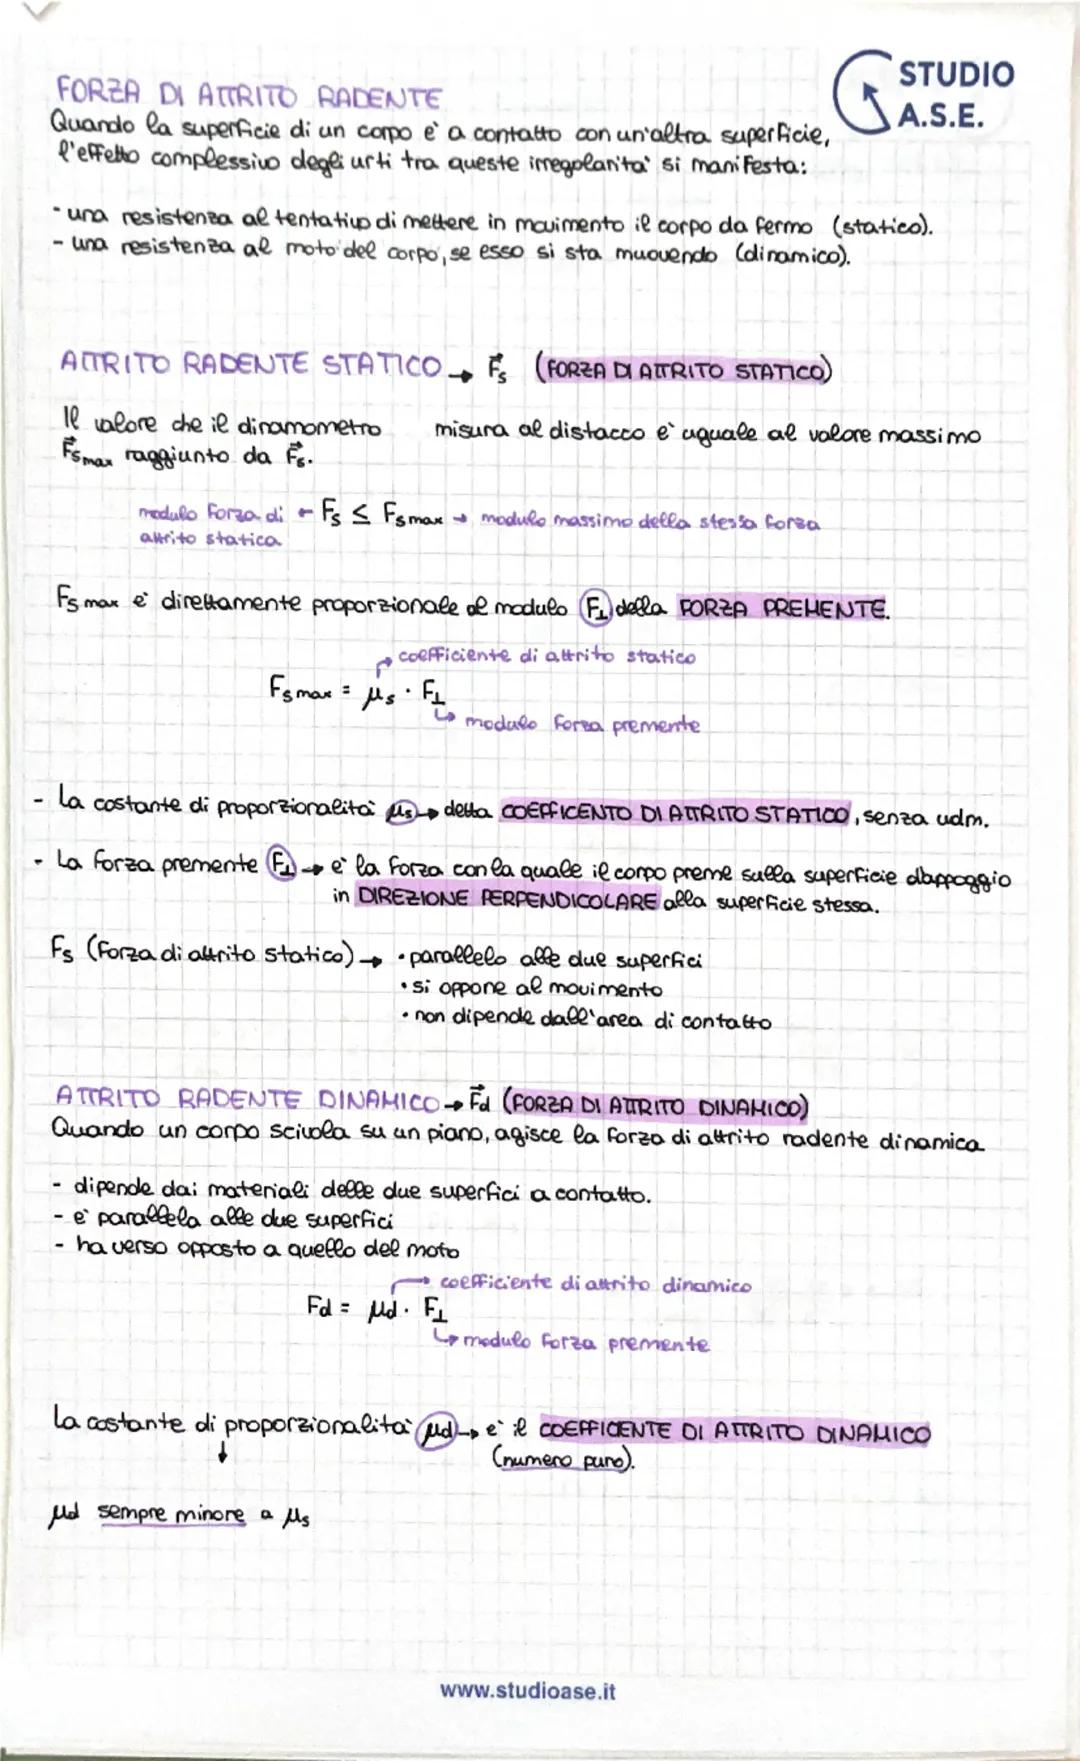 STUDIO
A.S.E.
FORZA DI ATTRITO RADENTE
Quando la superficie di un corpo e' a contatto con un'altra superficie,
l'effetto complessivo degli urti tra queste irregolarita' si manifesta:
- una resistenza al tentativo di mettere in movimento il corpo da fermo (statico).
- una resistenza al moto del corpo, se esso si sta muovendo (dinamico).
ATTRITO RADENTE STATICO → F⃗s (FORZA DI ATTRITO STATICO)
Il valore che il dinamometro misura al distacco e' uguale al valore massimo
F⃗s max raggiunto da F⃗s.
modulo forza di ← Fs ≤ Fs max → modulo massimo della stessa forza
attrito statica
Fs max e' direttamente proporzionale al modulo F⊥ della FORZA PREMENTE.
coefficiente di attrito statico
Fs max = μs · F⊥
↳ modulo forza premente
- La costante di proporzionalita' μs → detta COEFFICENTO DI ATTRITO STATICO, senza udm.
- La forza premente F⊥ → e' la forza con la quale il corpo preme sulla superficie d'appoggio
in DIREZIONE PERPENDICOLARE alla superficie stessa.
Fs (forza di attrito statico) → • parallelo alle due superfici
• si oppone al movimento
• non dipende dall'area di contatto
ATTRITO RADENTE DINAMICO → F⃗d (FORZA DI ATTRITO DINAMICO)
Quando un corpo scivola su un piano, agisce la forza di attrito radente dinamica
- dipende dai materiali delle due superfici a contatto.
- e' parallela alle due superfici
- ha verso opposto a quello del moto
→ coefficiente di attrito dinamico
Fd = μd · F⊥
↳ modulo forza premente
La costante di proporzionalita' μd → e' il COEFFICENTE DI ATTRITO DINAMICO
↓ (numero puro).
μd sempre minore a μs
www.studioase.it